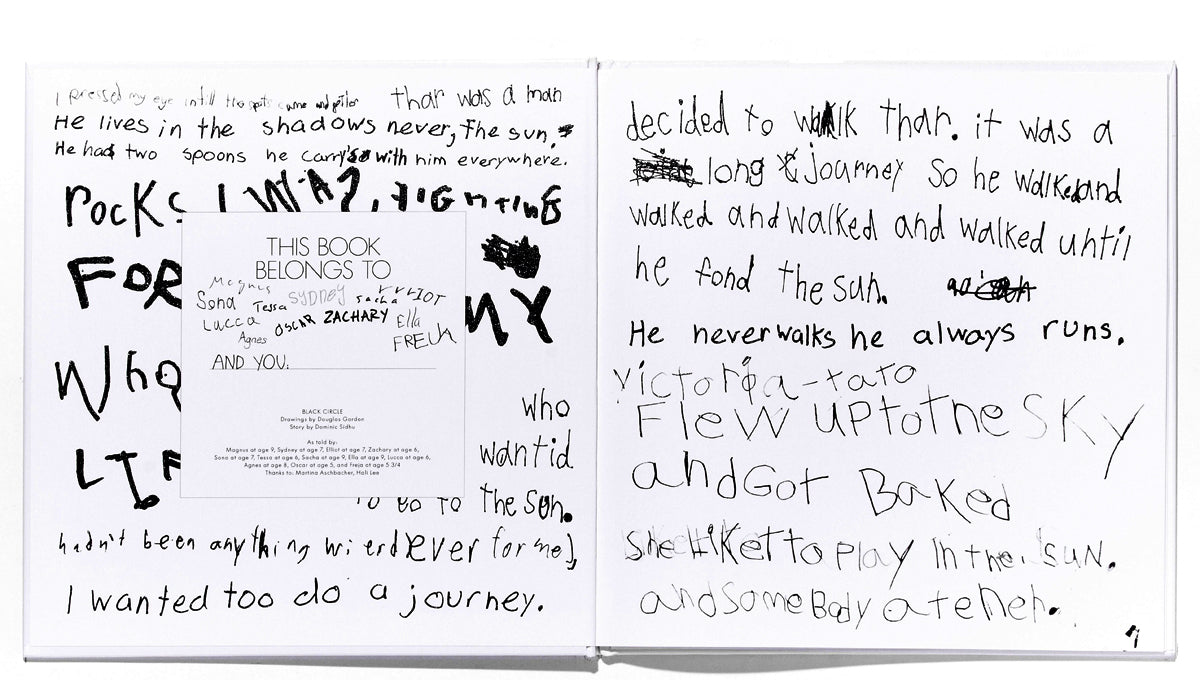 I pressed my eye intill the spots came and pitler thar was a man
He lives in the shadows never, The sun.
He had two spoons he carry's with him everywhere.
rocks I WAZ, FIGHTING
FOR
NY
Who
LIF
who
wantid
to go to the sun.
hadn't been anything wierd (ever for me),
I wanted too do a journey.
THIS BOOK
BELONGS TO
Magnus
Sona Tessa SYDNEY sacha ELLIOT
Lucca Agnes OSCAR ZACHARY Ella
FREJA
AND YOU.
BLACK CIRCLE
Drawings by Douglas Gordon
Story by Dominic Sidhu
As told by:
Magnus at age 9, Sydney at age 7, Elliot at age 7, Zachary at age 6,
Sona at age 7, Tessa at age 6, Sacha at age 9, Ella at age 9, Lucca at age 6,
Agnes at age 8, Oscar at age 5, and Freja at age 5 3/4
Thanks to: Martina Aschbacher, Hali Lee
decided to walk thar. it was a
long journey So he walked and
walked and walked and walked until
he fond the sun.
He never walks he always runs.
victoria-tato
Flew up to the SKy
and Got Baked
She Liket to play In the SUN.
and some Body ate her.